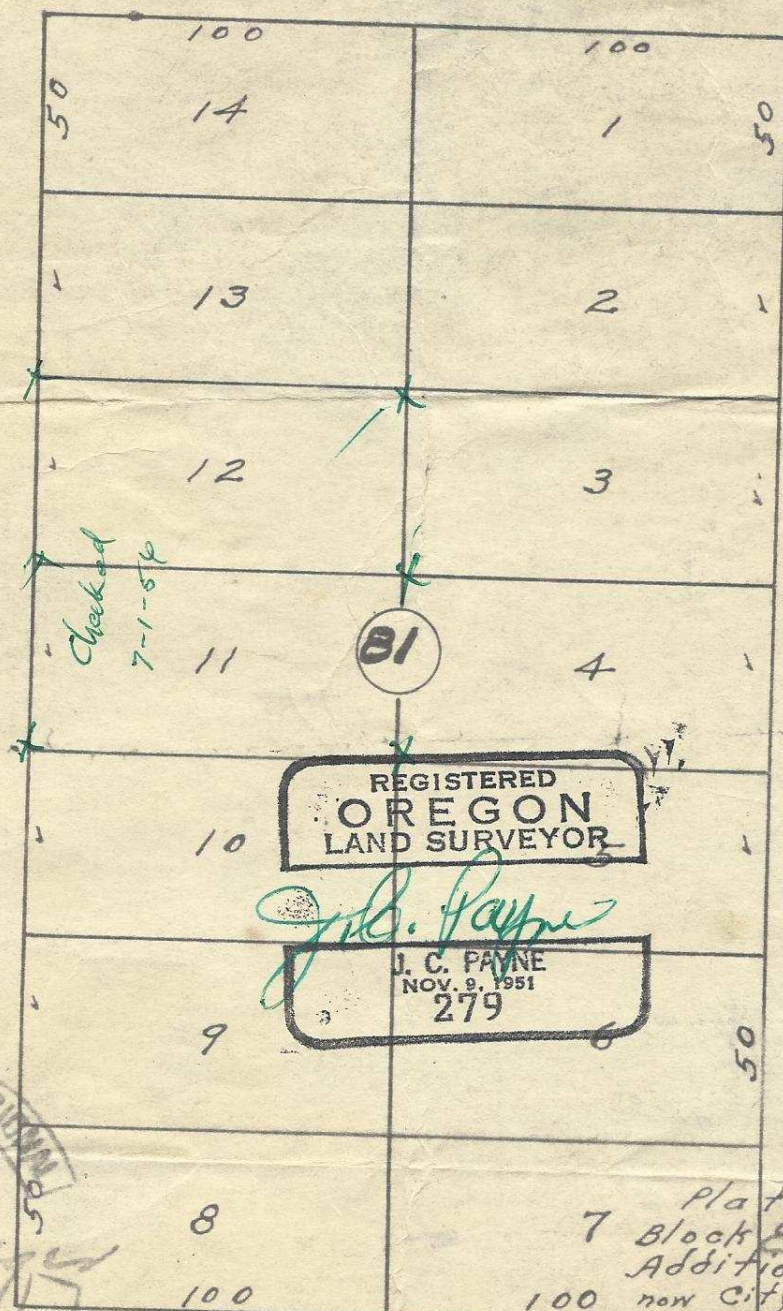 100 100
50 14 1 50
13 2
12 3
Checked
7-1-56
11 81 4
REGISTERED
OREGON
LAND SURVEYOR
10 5
J. C. Payne
J. C. PAYNE
NOV. 9, 1951
279
9 6 50
50 8 7
Plat
Block
Additio
100 100 now Cit